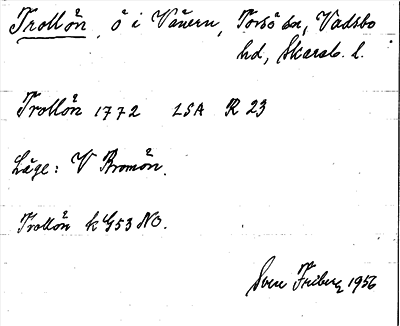 Trollön, ö i Vänern, Torsö sn, Vadsbo
hd, Skarab. l.
Trollön 1772 LSA R 23
Läge: V Bromön.
Trollön k G53 NO.
Sven Friberg 1956